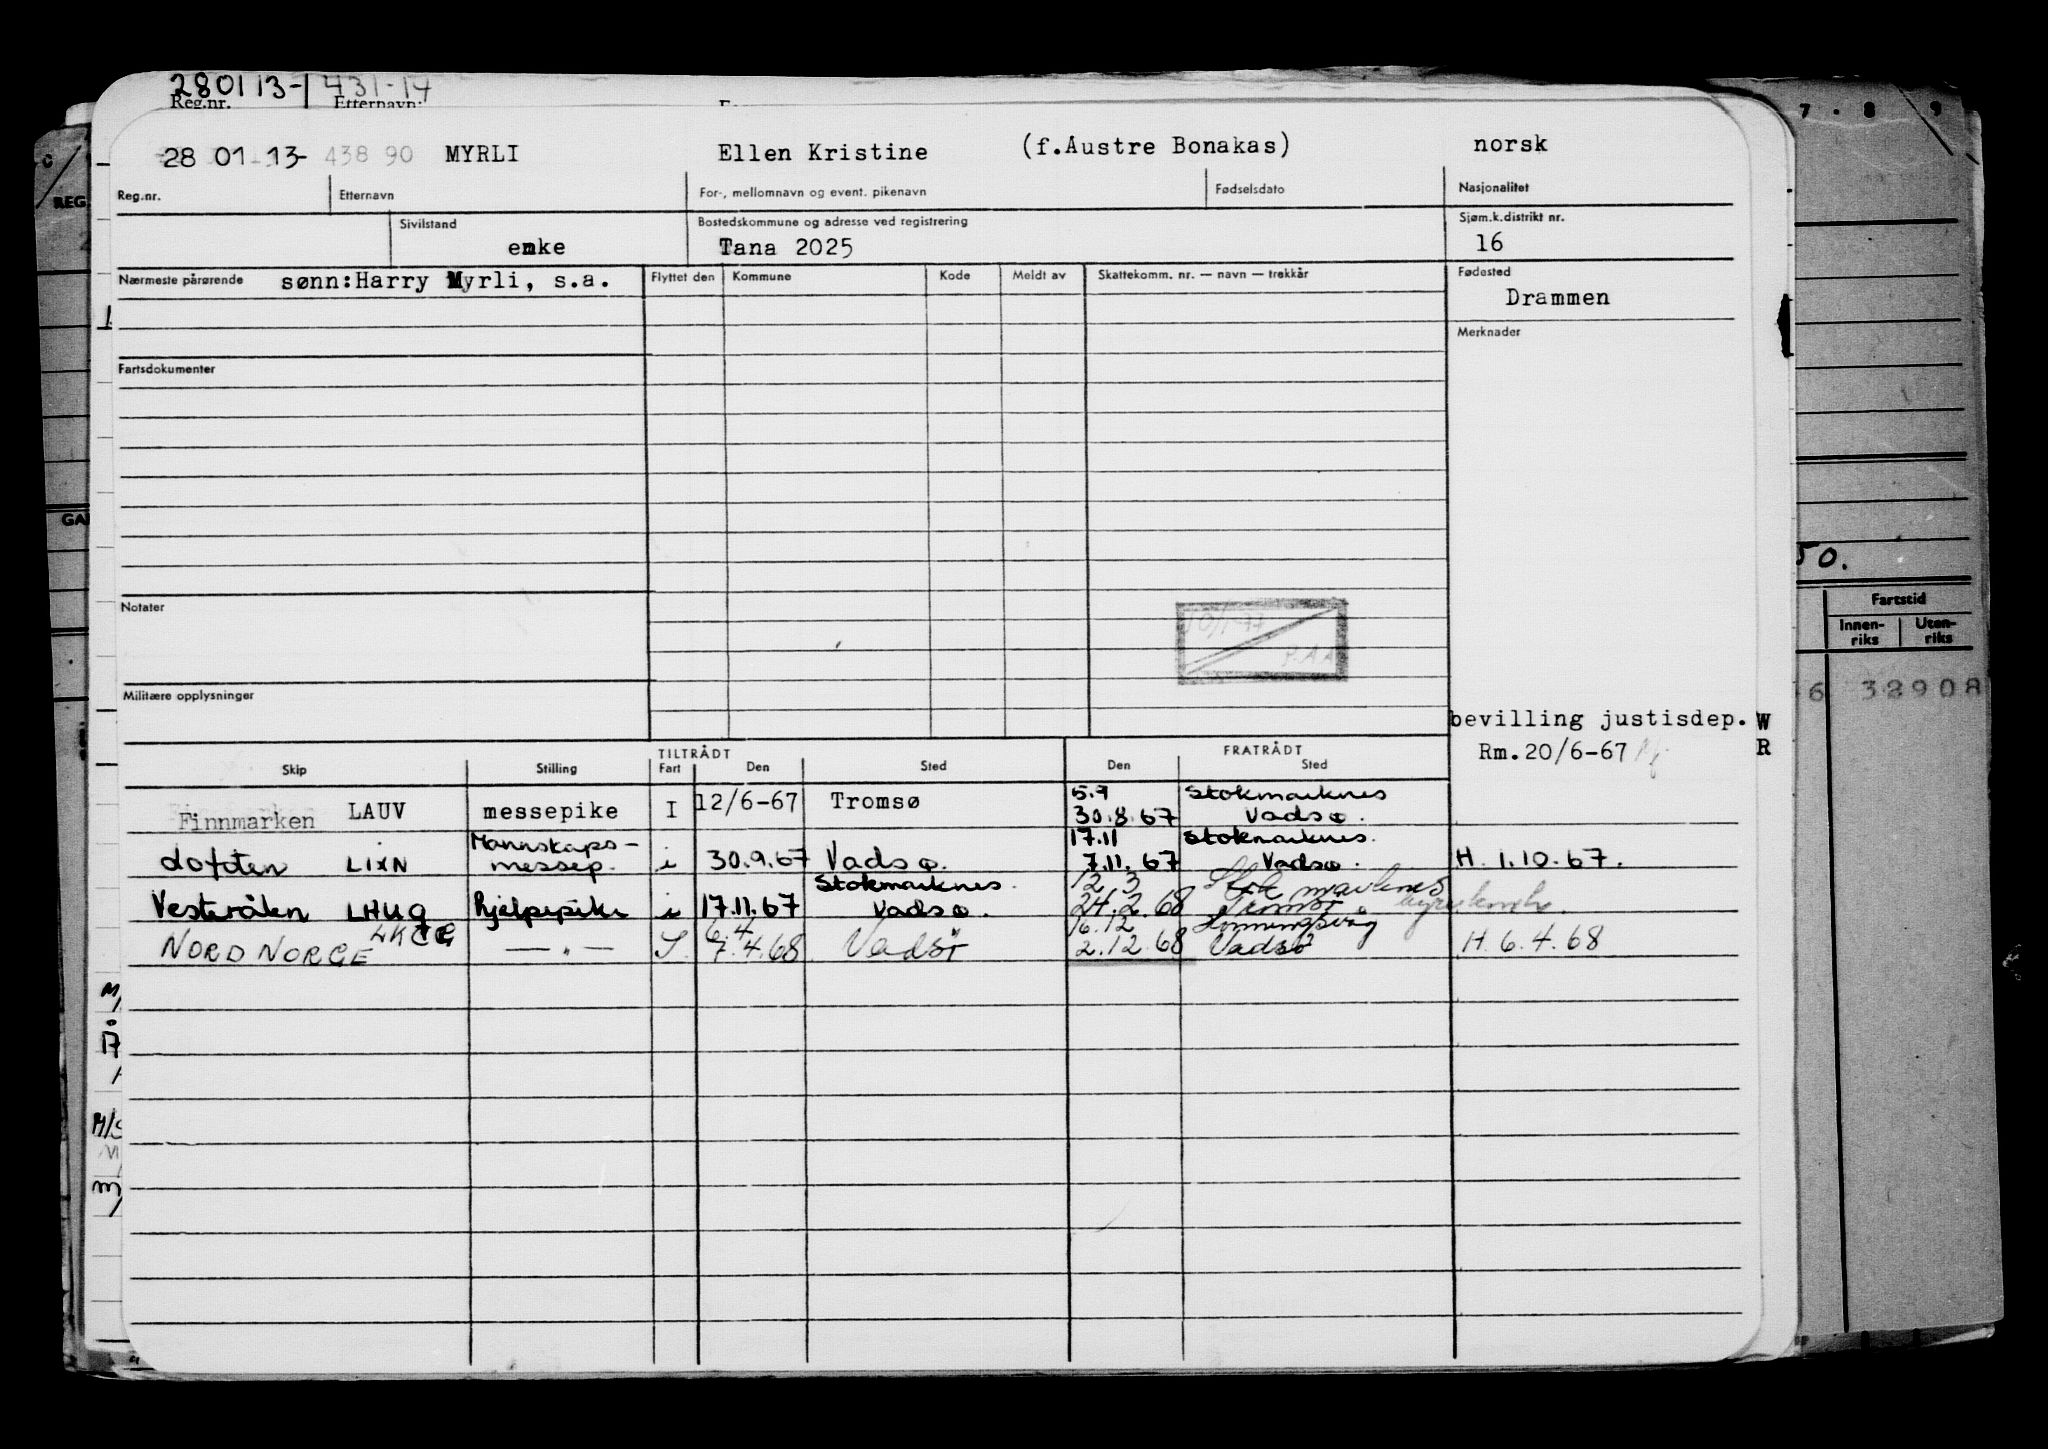 280113- 431-14
Reg.nr. Etternavn:
28 01 13- 438 90 MYRLI Ellen Kristine (f.Austre Bonakas) norsk
Reg.nr. Etternavn For-, mellomnavn og event. pikenavn Fødselsdato Nasjonalitet
Sivilstand Bostedskommune og adresse ved registrering Sjøm.k.distrikt nr.
enke Tana 2025 16
Nærmeste pårørende sønn:Harry Myrli, s.a. Flyttet den Kommune Kode Meldt av Skattekomm. nr. — navn — trekkår Fødested
Drammen
Merknader
Fartsdokumenter
Notater
Militære opplysninger
bevilling justisdep. W
Rm.20/6-67 R
TILTRÅDT FRATRÅDT
Skip Stilling Fart Den Sted Den Sted
Finnmarken LAUV messepike I 12/6-67 Tromsø 5.9 Stokmarknes
30.8.67 Vadsø.
Lofoten LIXN Mannskaps- messep. i 30.9.67 Vadsø. 17.11 Stokmarknes.
7.11.67 Vadsø. H. 1.10.67.
Vesterålen LHUQ Hjelpepike i 17.11.67 Stokmarknes. Vadsø. 12 3 Stokmarknes
24.2.68 Tromsø
NORD NORGE —"— 6.4 7.4.68 Vadsø 16.12 Honningsvåg
2.12.68 Vadsø H. 6.4.68
REG
7 . 8 9
50.
Fartstid
Innen-riks Uten-riks
6 32908
M/
M/S